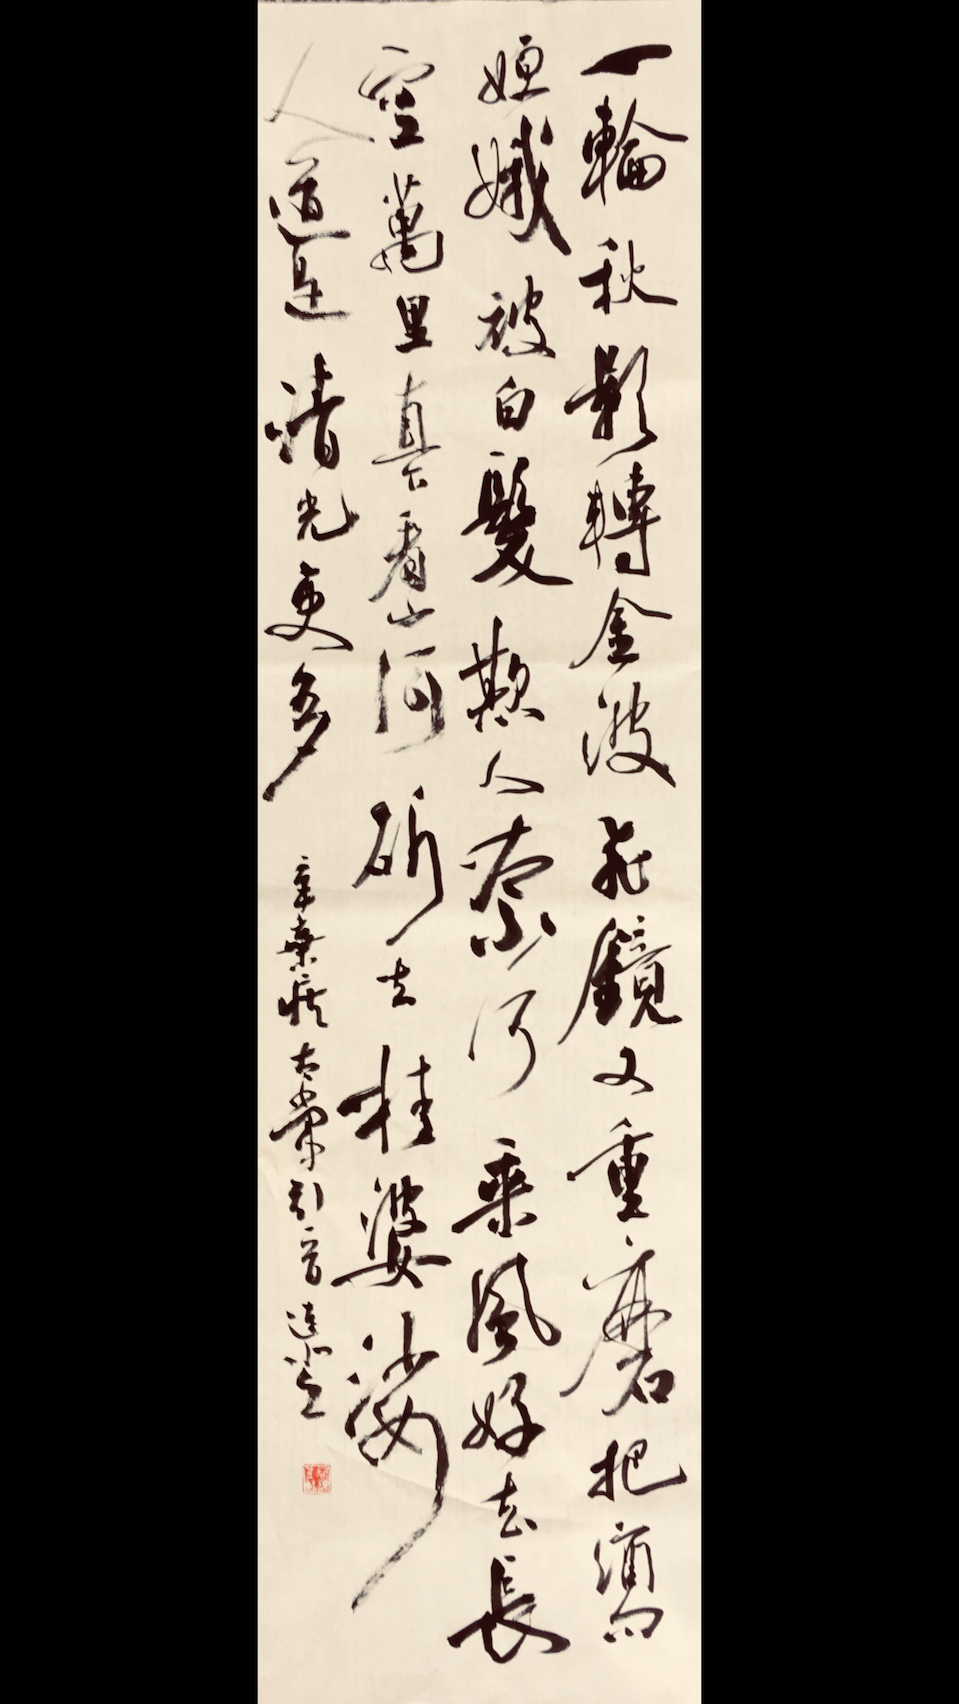 一輪秋影轉金波飛鏡又重磨把酒問
姮娥被白髮欺人奈何乘風好去長
空萬里直下看山河斫去桂婆娑
人道是清光更多
辛棄疾太常引一首